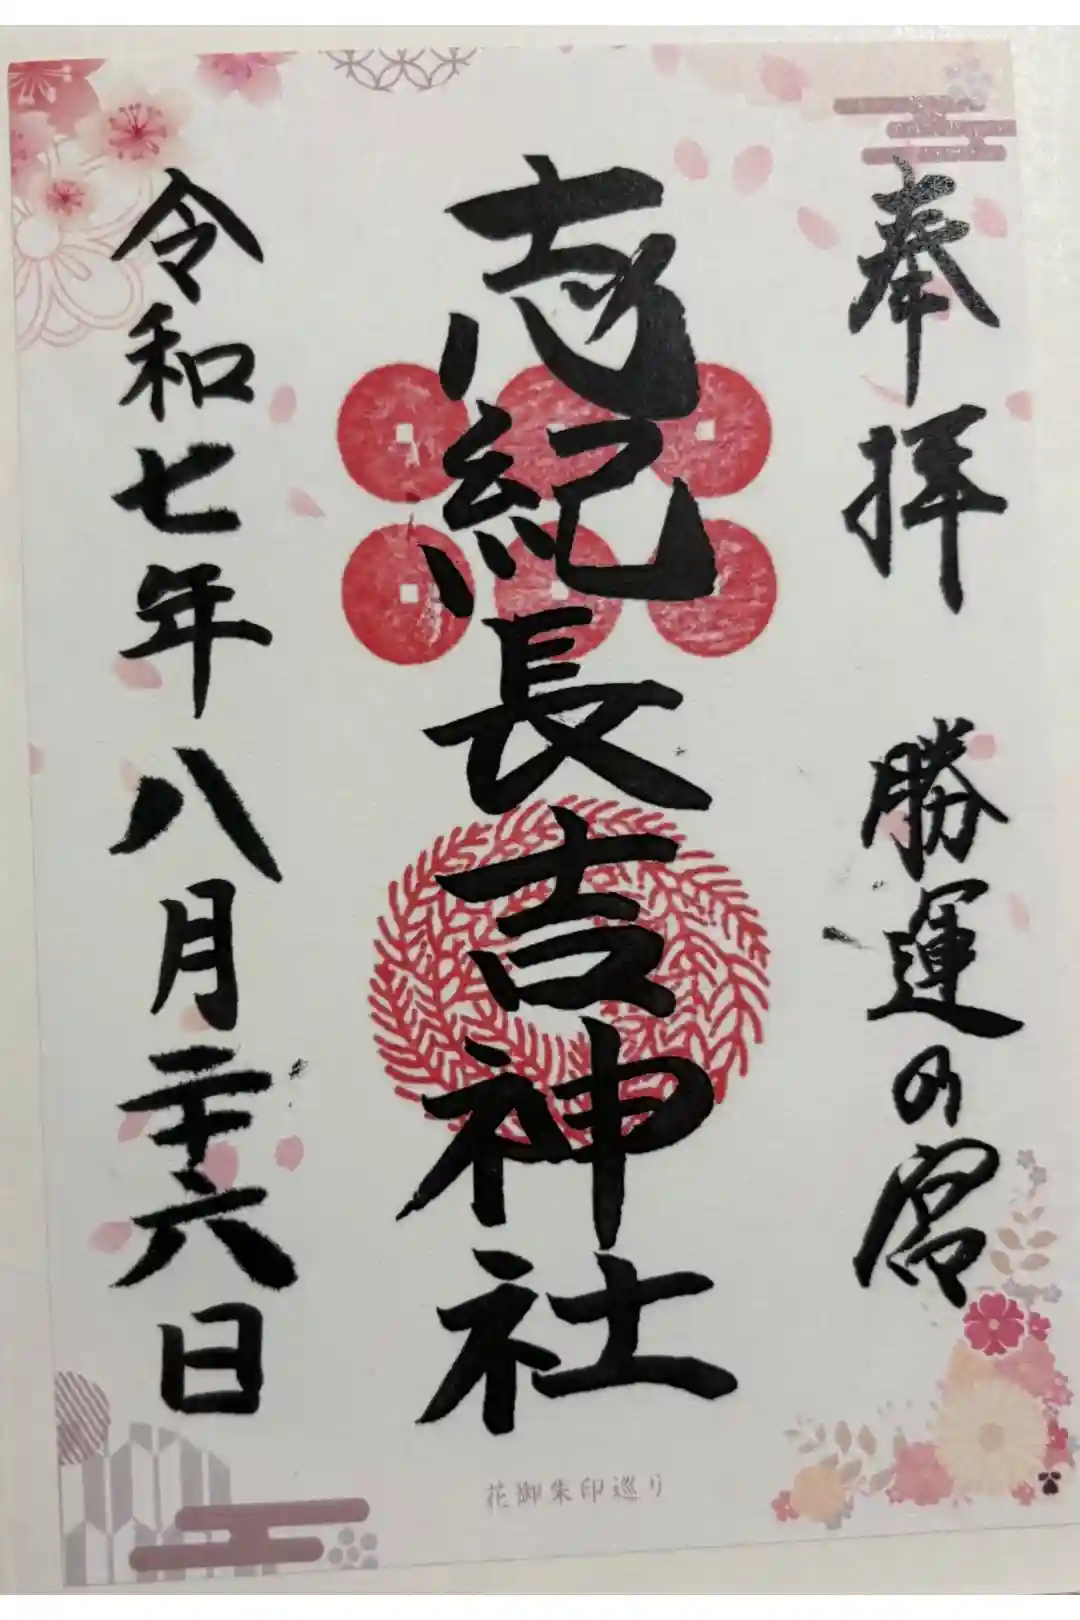 奉拝 勝運の宮
志紀長吉神社
令和七年八月二十六日
花御朱印巡り